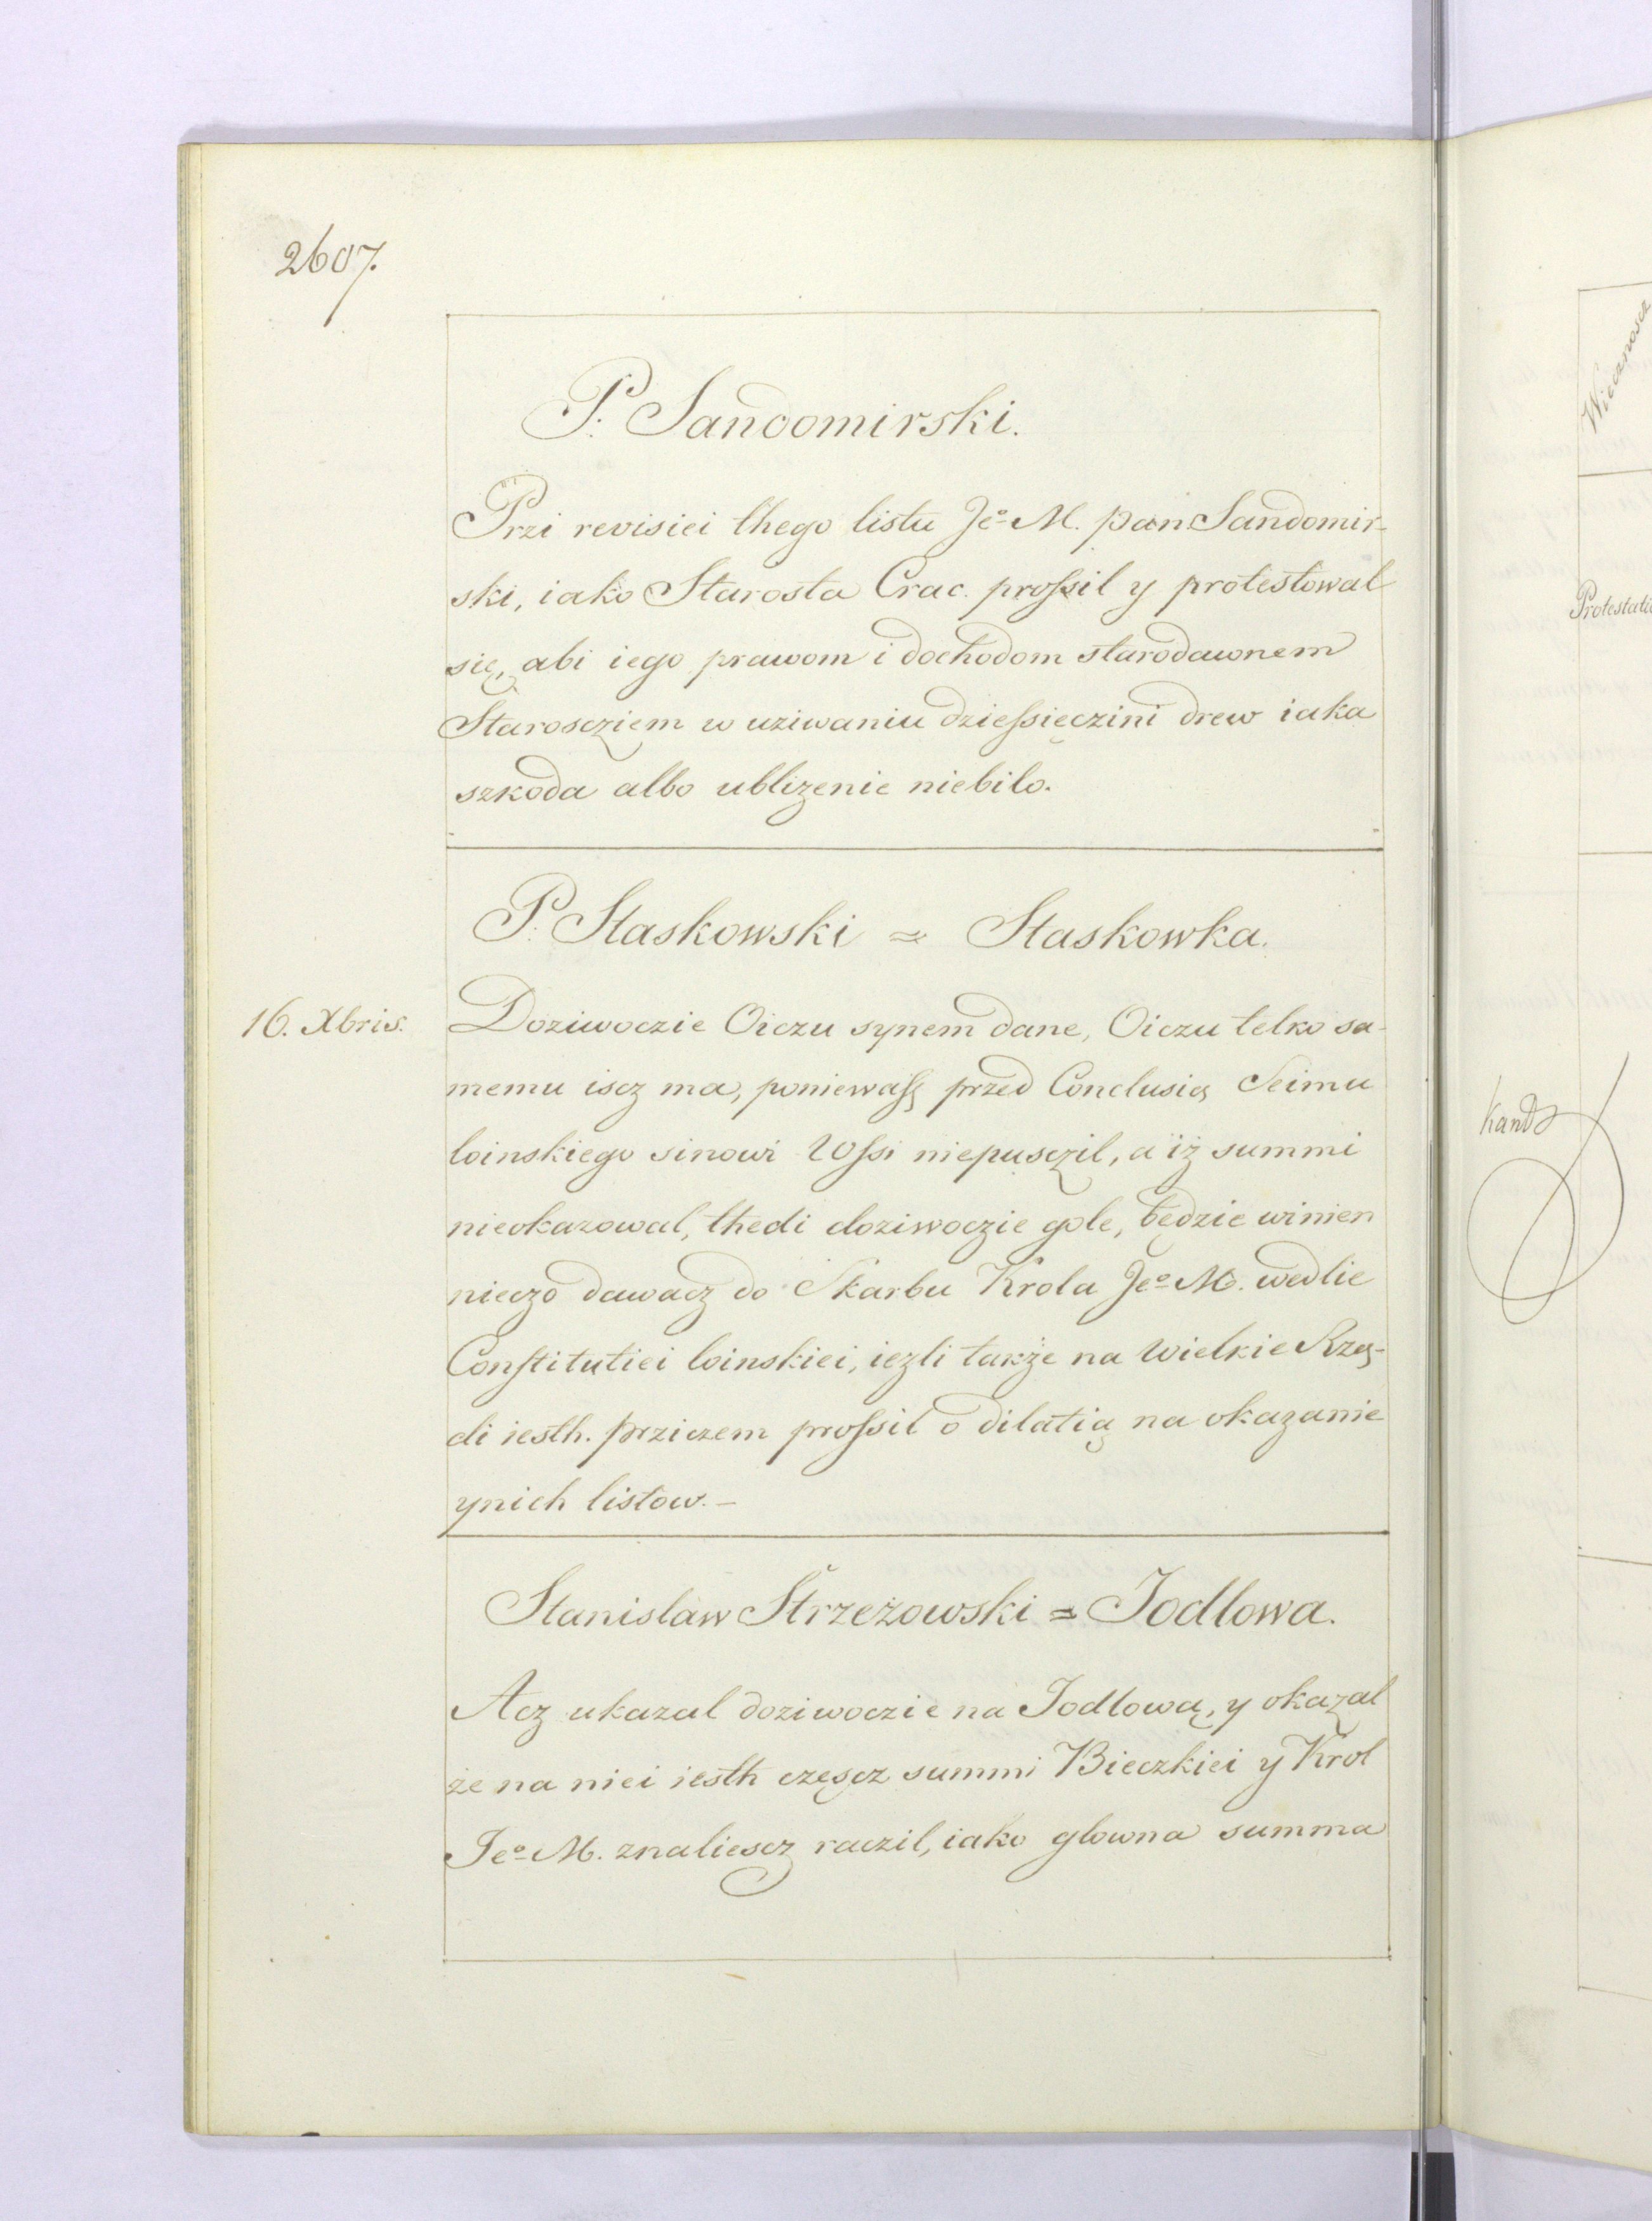 2607.
P. Sandomirski.
Przi revisiei thego listu Jeº M. pan Sandomir-
ski, iako Starosta Crac. prosſil y protestowal
się, abi iego prawom i dochodom starodawnem
Staroscziem w uziwaniu dzieſsięczini drew iaka
szkoda albo ublizenie niebilo.
P. Staskowski = Staskowka.
16. Xbris.
Doziwoczie Oiczu synem dane, Oiczu telko sa-
memu iscz ma, poniewaſz przed Conclusią Seimu
loinskiego sinowi Wſsi niepusczil, a iz summi
nieokazowal, thedi doziwoczie gole, będzie winien
nieczo dawacz do Skarbu Krola Jeº M. wedlie
Conſtitutiei loinskiei, iezli także na Wielkie Rzą-
di iesth. prziczem proſsil o dilatią na okazanie
ynich listow. –
Stanislaw Strzeżowski = Jodlowa.
Acz ukazal doziwoczie na Jodlową, y okazal
że na niei iesth częscz summi Bieczkiei y Krol
Jeº M. znaliescz raczil, iako glowna summa
Wiecznosc
Protestati
Kand